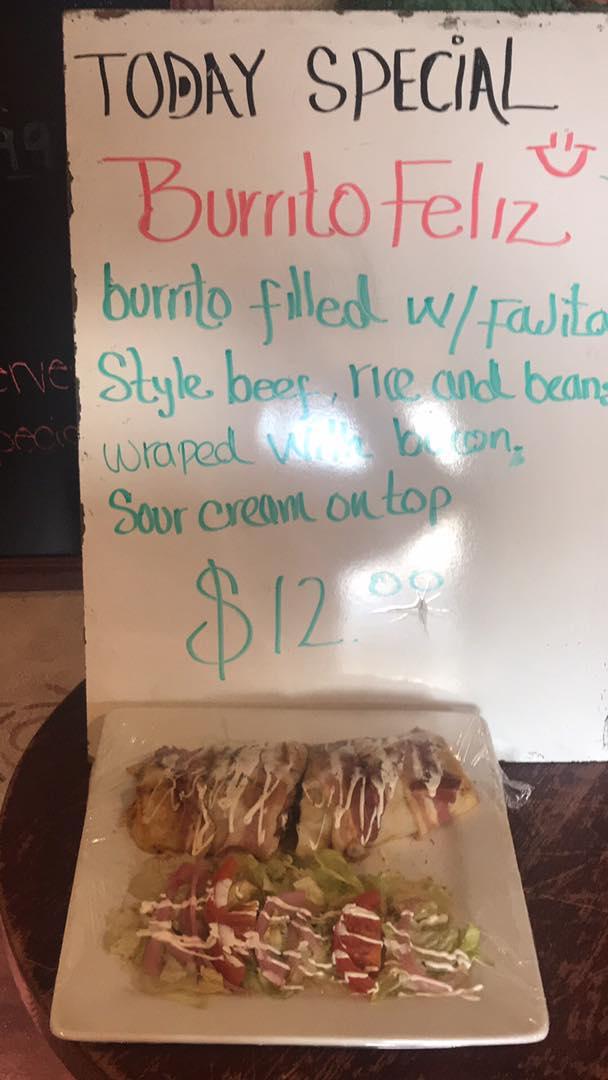 TODAY SPECIAL
Burrito Feliz
burrito filled w/ Fajita
Style beef, rice and beans
wraped with bacon,
Sour cream on top
$12.00